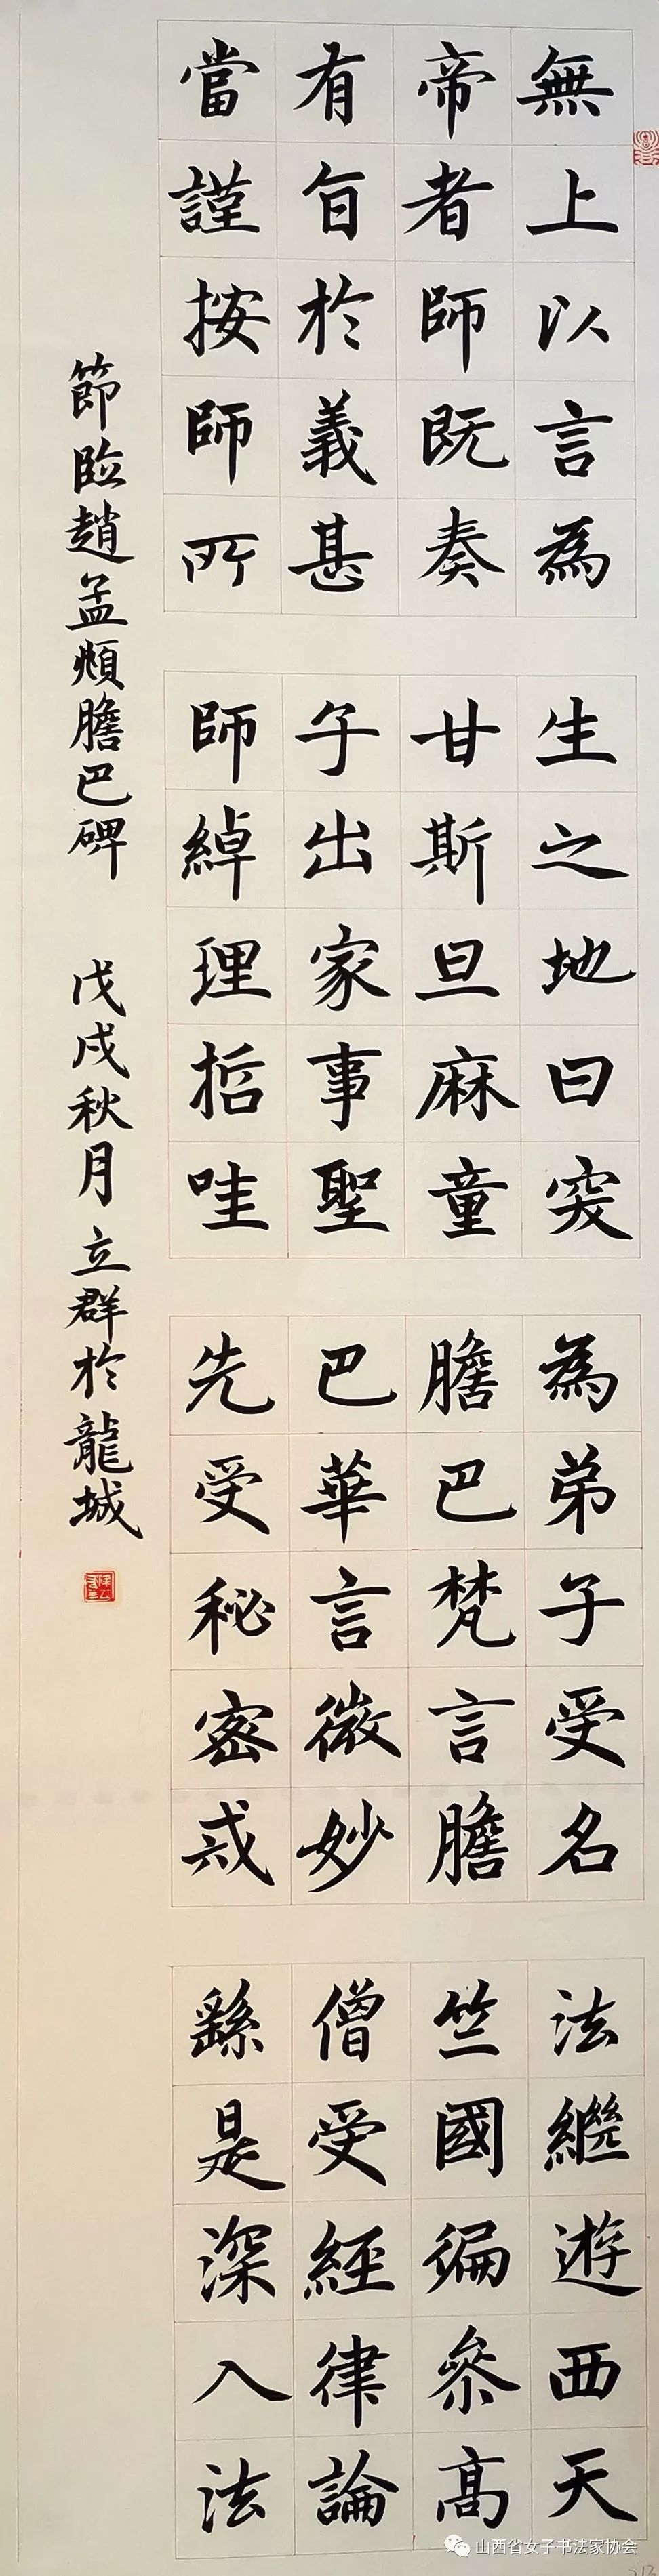 無上以言為
帝者師既奏
有旨於義甚
當謹按師所
生之地曰突
甘斯旦麻童
子出家事聖
師綽理哲哇
為弟子受名
膽巴梵言膽
巴華言微妙
先受秘密戒
法繼遊西天
竺國徧參高
僧受經律論
繇是深入法
節臨趙孟頫膽巴碑 戊戌秋月立群於龍城
山西省女子书法家协会